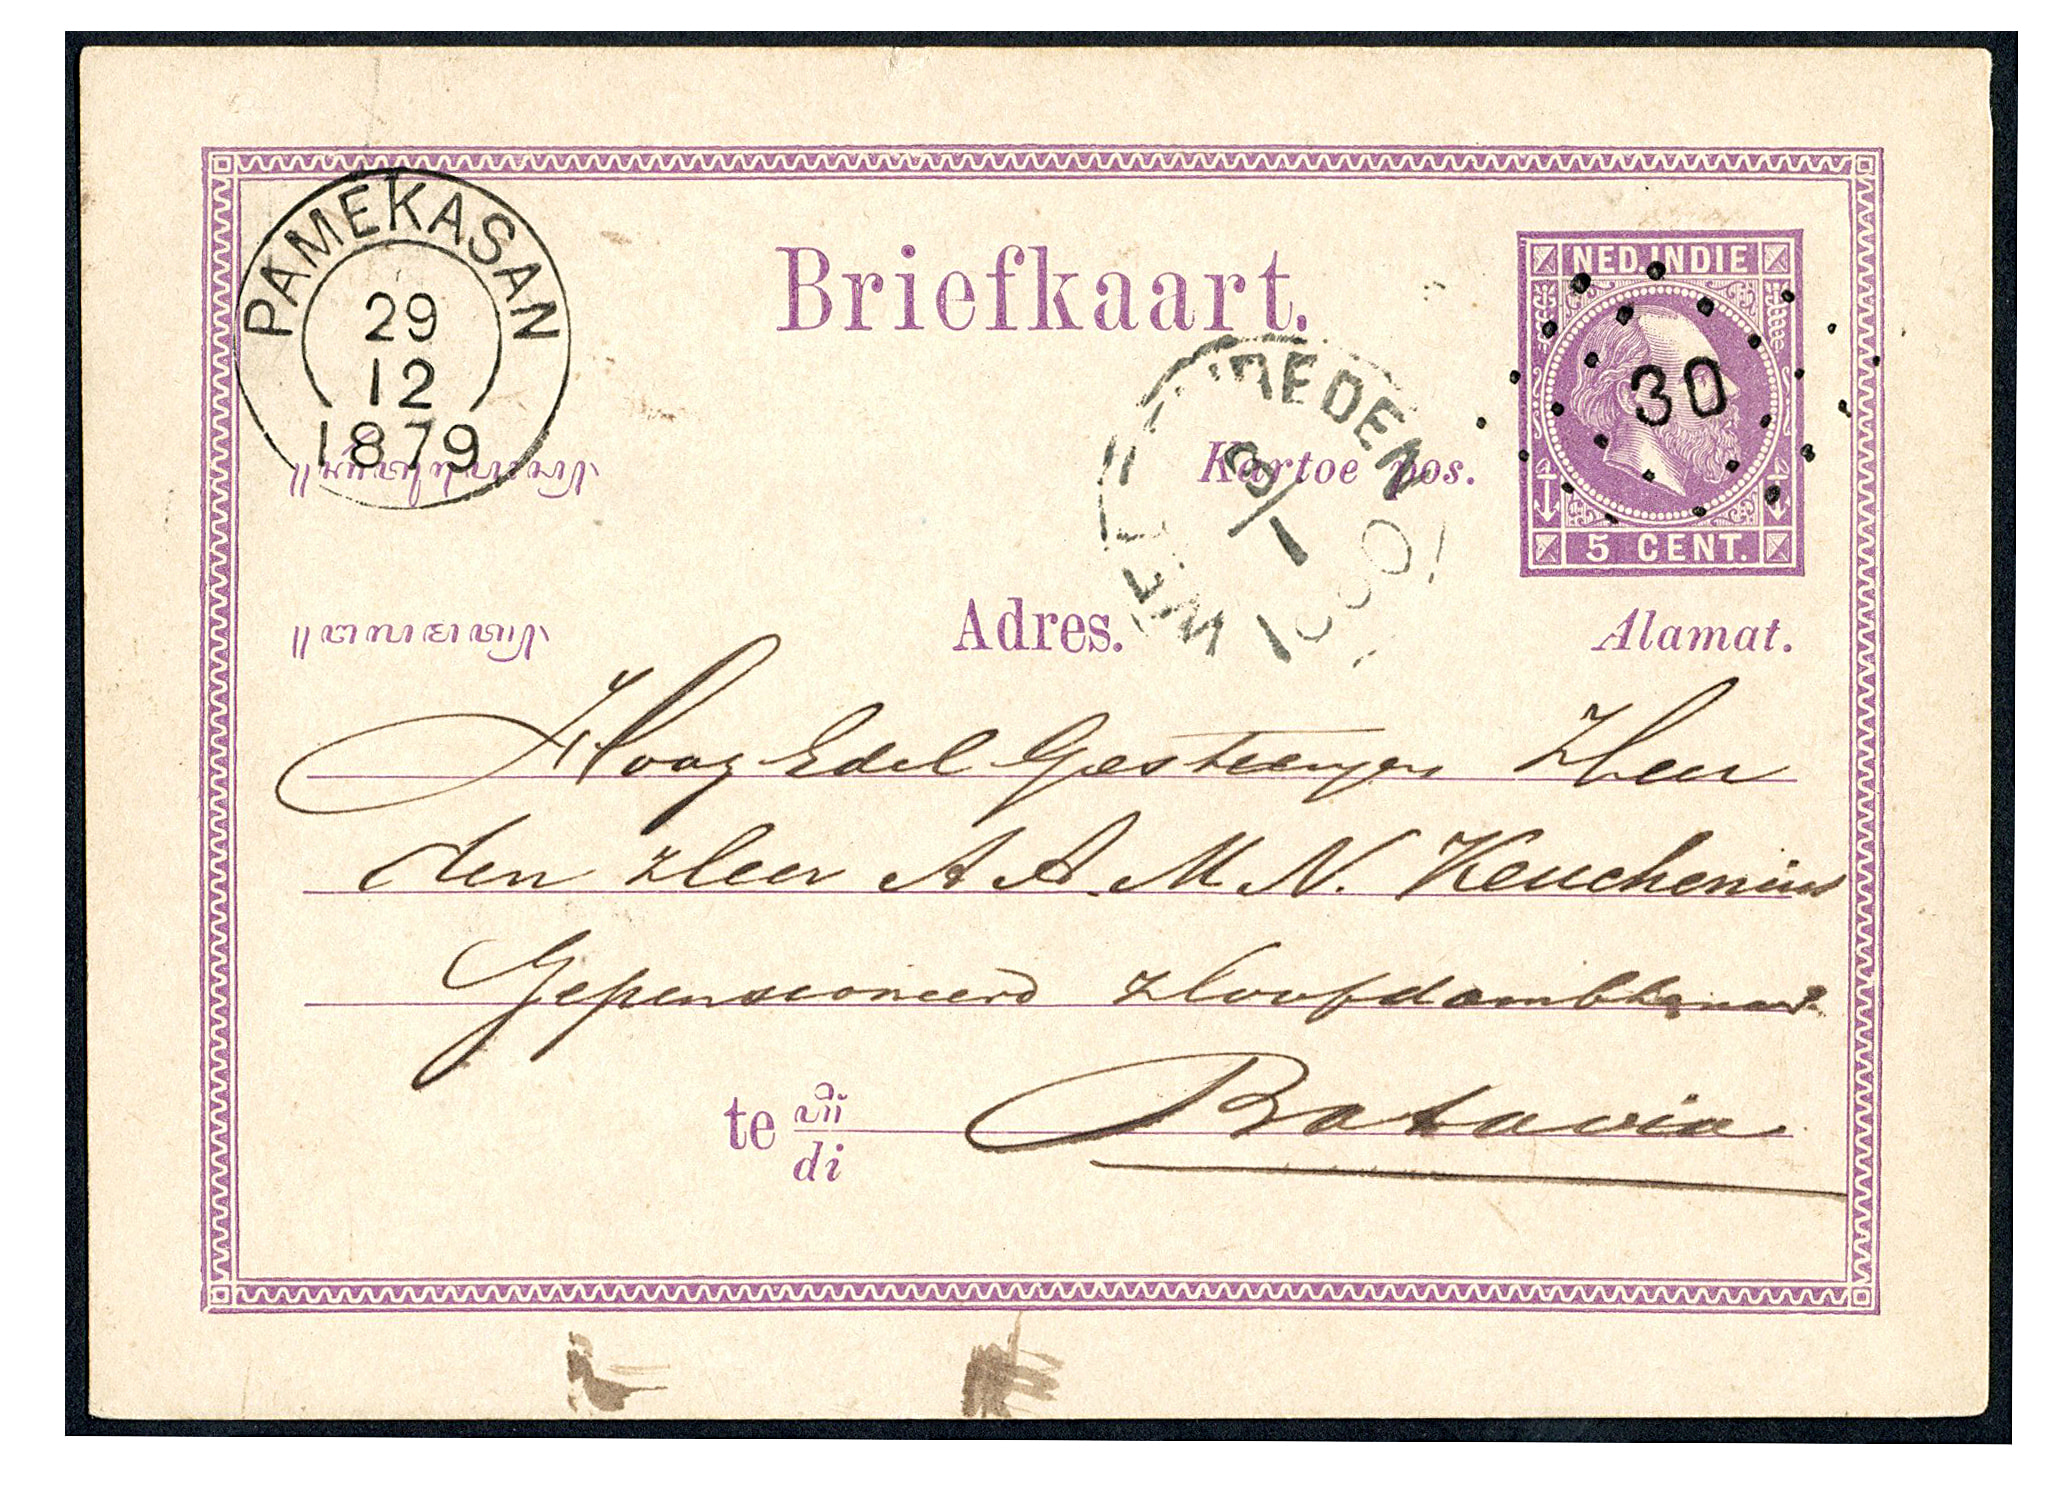 PAMEKASAN
29
12
1879
Briefkaart.
NED. INDIE
30
5 CENT.
Kartoe pos.
Adres.
Alamat.
Hoog Edel Gestrengen Heer
den Heer A A. M N. Keuchenius
Gepensioneerd Hoofdambtenaar
te
di
Batavia